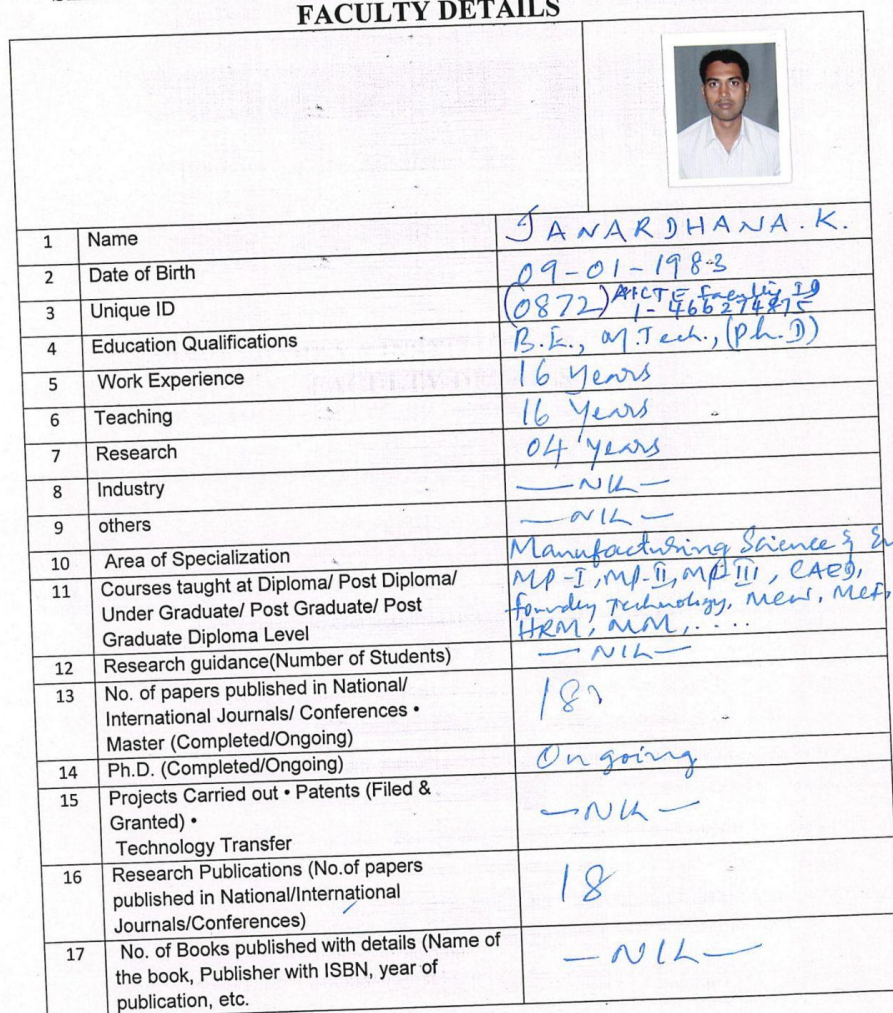 FACULTY DETAILS
1 Name JANARDHANA.K.
2 Date of Birth 09-01-1983
3 Unique ID (0872) AICTE Faculty ID
1-466274875
4 Education Qualifications B.E., M.Tech., (Ph.D)
5 Work Experience 16 Years
6 Teaching 16 Years
7 Research 04 Years
8 Industry —NIL—
9 others —NIL—
10 Area of Specialization Manufacturing Science &
11 Courses taught at Diploma/ Post Diploma/ MP-I, MP-II, MP-III, CAED,
Under Graduate/ Post Graduate/ Post foundry Technology,
Graduate Diploma Level HRM, MM, ....
12 Research guidance(Number of Students) —NIL—
13 No. of papers published in National/ 18
International Journals/ Conferences •
Master (Completed/Ongoing)
14 Ph.D. (Completed/Ongoing) Ongoing
15 Projects Carried out • Patents (Filed & —NIL—
Granted) •
Technology Transfer
16 Research Publications (No.of papers 18
published in National/International
Journals/Conferences)
17 No. of Books published with details (Name of —NIL—
the book, Publisher with ISBN, year of
publication, etc.